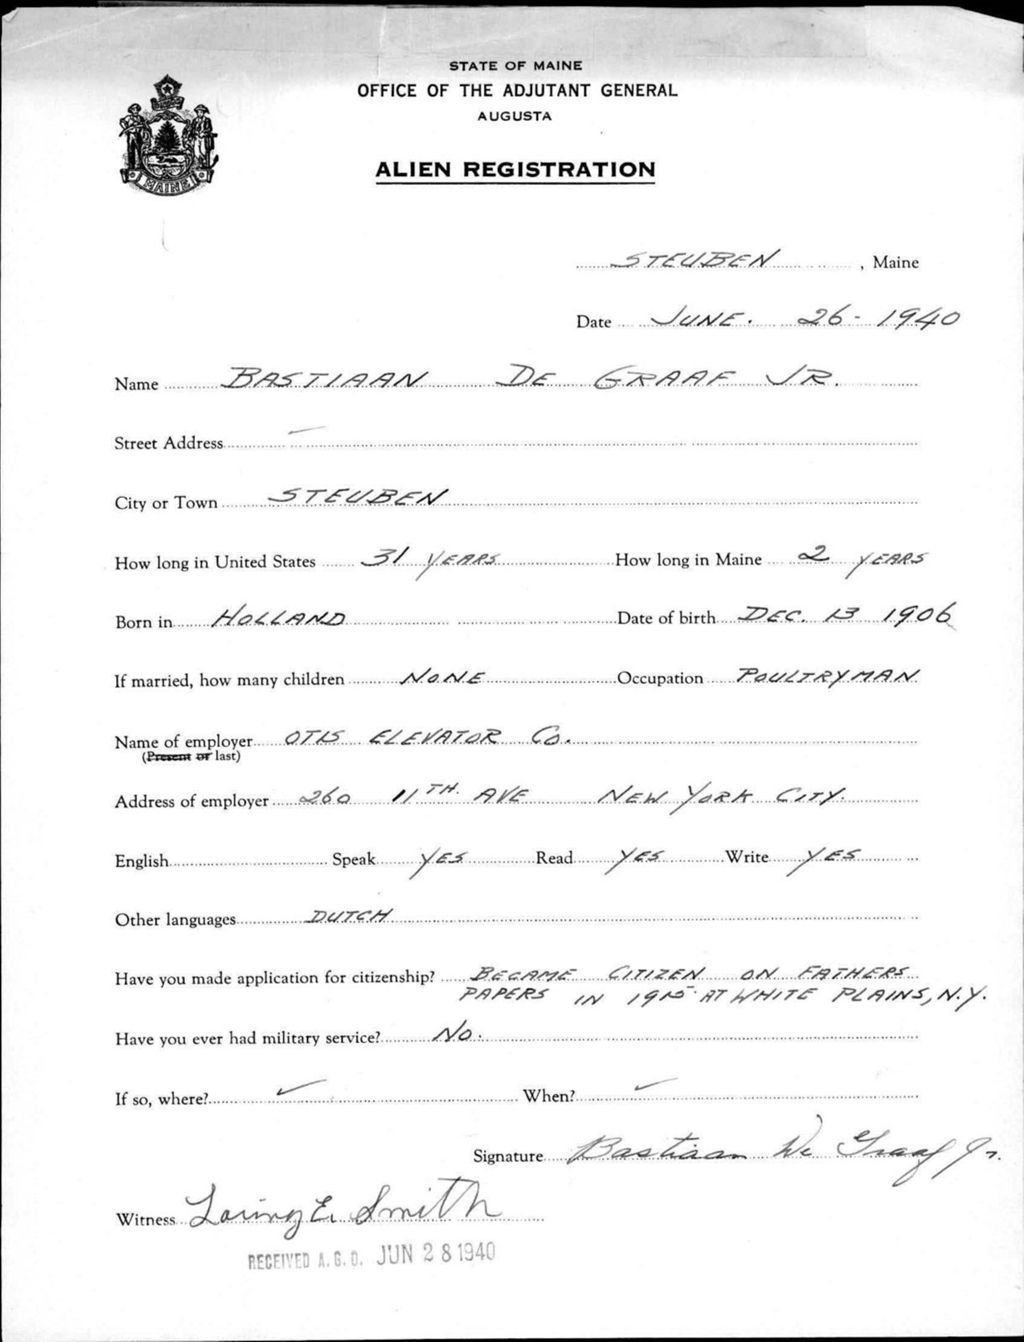 STATE OF MAINE
OFFICE OF THE ADJUTANT GENERAL
AUGUSTA
ALIEN REGISTRATION
MAINE
STEUBEN, Maine
Date JUNE. 26- 1940
Name BASTIAAN DE GRAAF JR.
Street Address
City or Town STEUBEN
How long in United States 31 YEARS How long in Maine 2 YEARS
Born in HOLLAND Date of birth DEC. 13 1906
If married, how many children NONE Occupation POULTRYMAN
Name of employer OTIS ELEVATOR CO.
(Present or last)
Address of employer 260 11TH. AVE NEW YORK CITY.
English Speak YES Read YES Write YES
Other languages DUTCH
Have you made application for citizenship? BECAME CITIZEN ON FATHERS
PAPERS IN 1915 AT WHITE PLAINS, N.Y.
Have you ever had military service? NO.
If so, where? When?
Signature Bastiaan De Graaf Jr.
Witness Loring E. Smith
RECEIVED A.G.O. JUN 28 1940